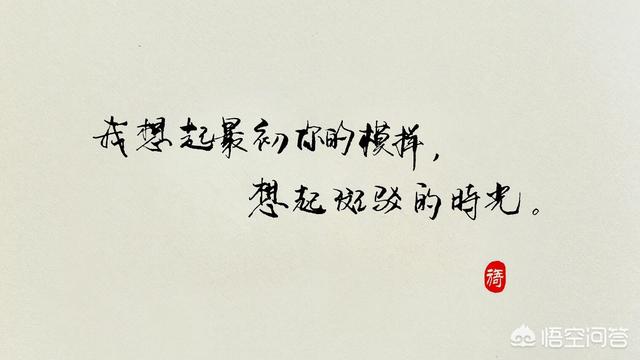 我想起最初你的模样，
想起斑驳的時光。
悟空问答